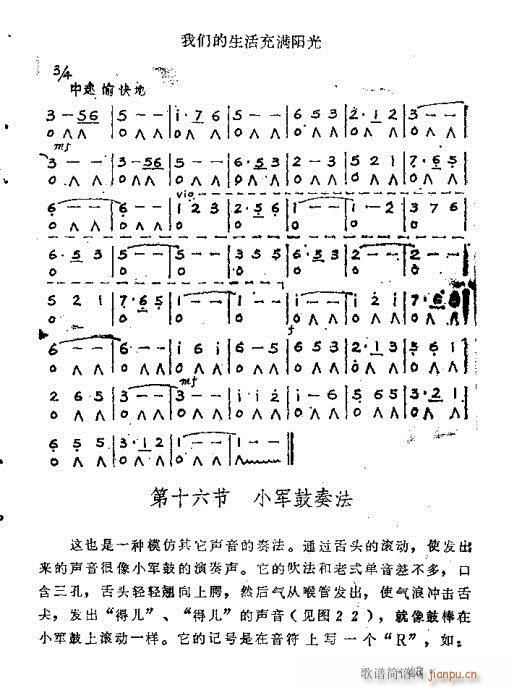 我们的生活充满阳光
3/4
中速 愉快地
3 - 56 | 5 - - | i · 7 6 | 5 - - | 6 5 3 | 2 · 1 2 | 3 - - |
o ∧ ∧ | o ∧ ∧ | o ∧ ∧ | o ∧ ∧ | o ∧ ∧ | o ∧ ∧ | o ∧ ∧ |
mf
3 - - | 3 - 56 | 5 - - | 6 · 5 3 | 2 - 3 | 5 2 1 | 7 · 6 5 |
o ∧ ∧ | o ∧ ∧ | o ∧ ∧ | o ∧ ∧ | o ∧ ∧ | o ∧ ∧ | o ∧ ∧ |
vio
6 - - | 6 - - | i 2 3 | 2 · 5 6 | i - - | i - - | 3 7 6 |
o | o | o | o | o | o | o |
6 · 5 3 | 5 - - | 5 - - | 3 5 5 | 6 · 5 3 | 2 - - | 2 - - |
o | o | o | o | o | o | o |
5 2 1 | 7 · 6 5 | 1 - - | 1 - - | i 2 i | 7 · 6
f
6 - - | 6 - - | i 6 i | 6 - 5 | 6 5 3 | 2 · 1 3 | 5 6 1 |
o ∧ ∧ | o ∧ ∧ | o ∧ ∧ | o ∧ ∧ | o ∧ ∧ | o ∧ ∧ | o ∧ ∧ |
mf
2 6 5 | 3 - - | 3 - - | i i 2 | i - 6 | 5 6 5 | 3 · 2 1 |
o ∧ ∧ | o ∧ ∧ | o ∧ ∧ | o ∧ ∧ | o ∧ ∧ | o ∧ ∧ | o ∧ ∧ |
6 5 5 | 3 · 1 2 | 1 - - | 1 - - ‖
o ∧ ∧ | o ∧ ∧ | o ∧ ∧ | ∧
第十六节 小军鼓奏法
这也是一种模仿其它声音的奏法。通过舌头的滚动，使发出
来的声音很像小军鼓的演奏声。它的吹法和老式单音差不多，口
含三孔，舌头轻轻翘向上腭，然后气从喉管发出，使气浪冲击舌
尖，发出“得儿”、“得儿”的声音（见图22），就像鼓棒在
小军鼓上滚动一样。它的记号是在音符上写一个“R”，如：
歌谱简谱网
jianpu.cn